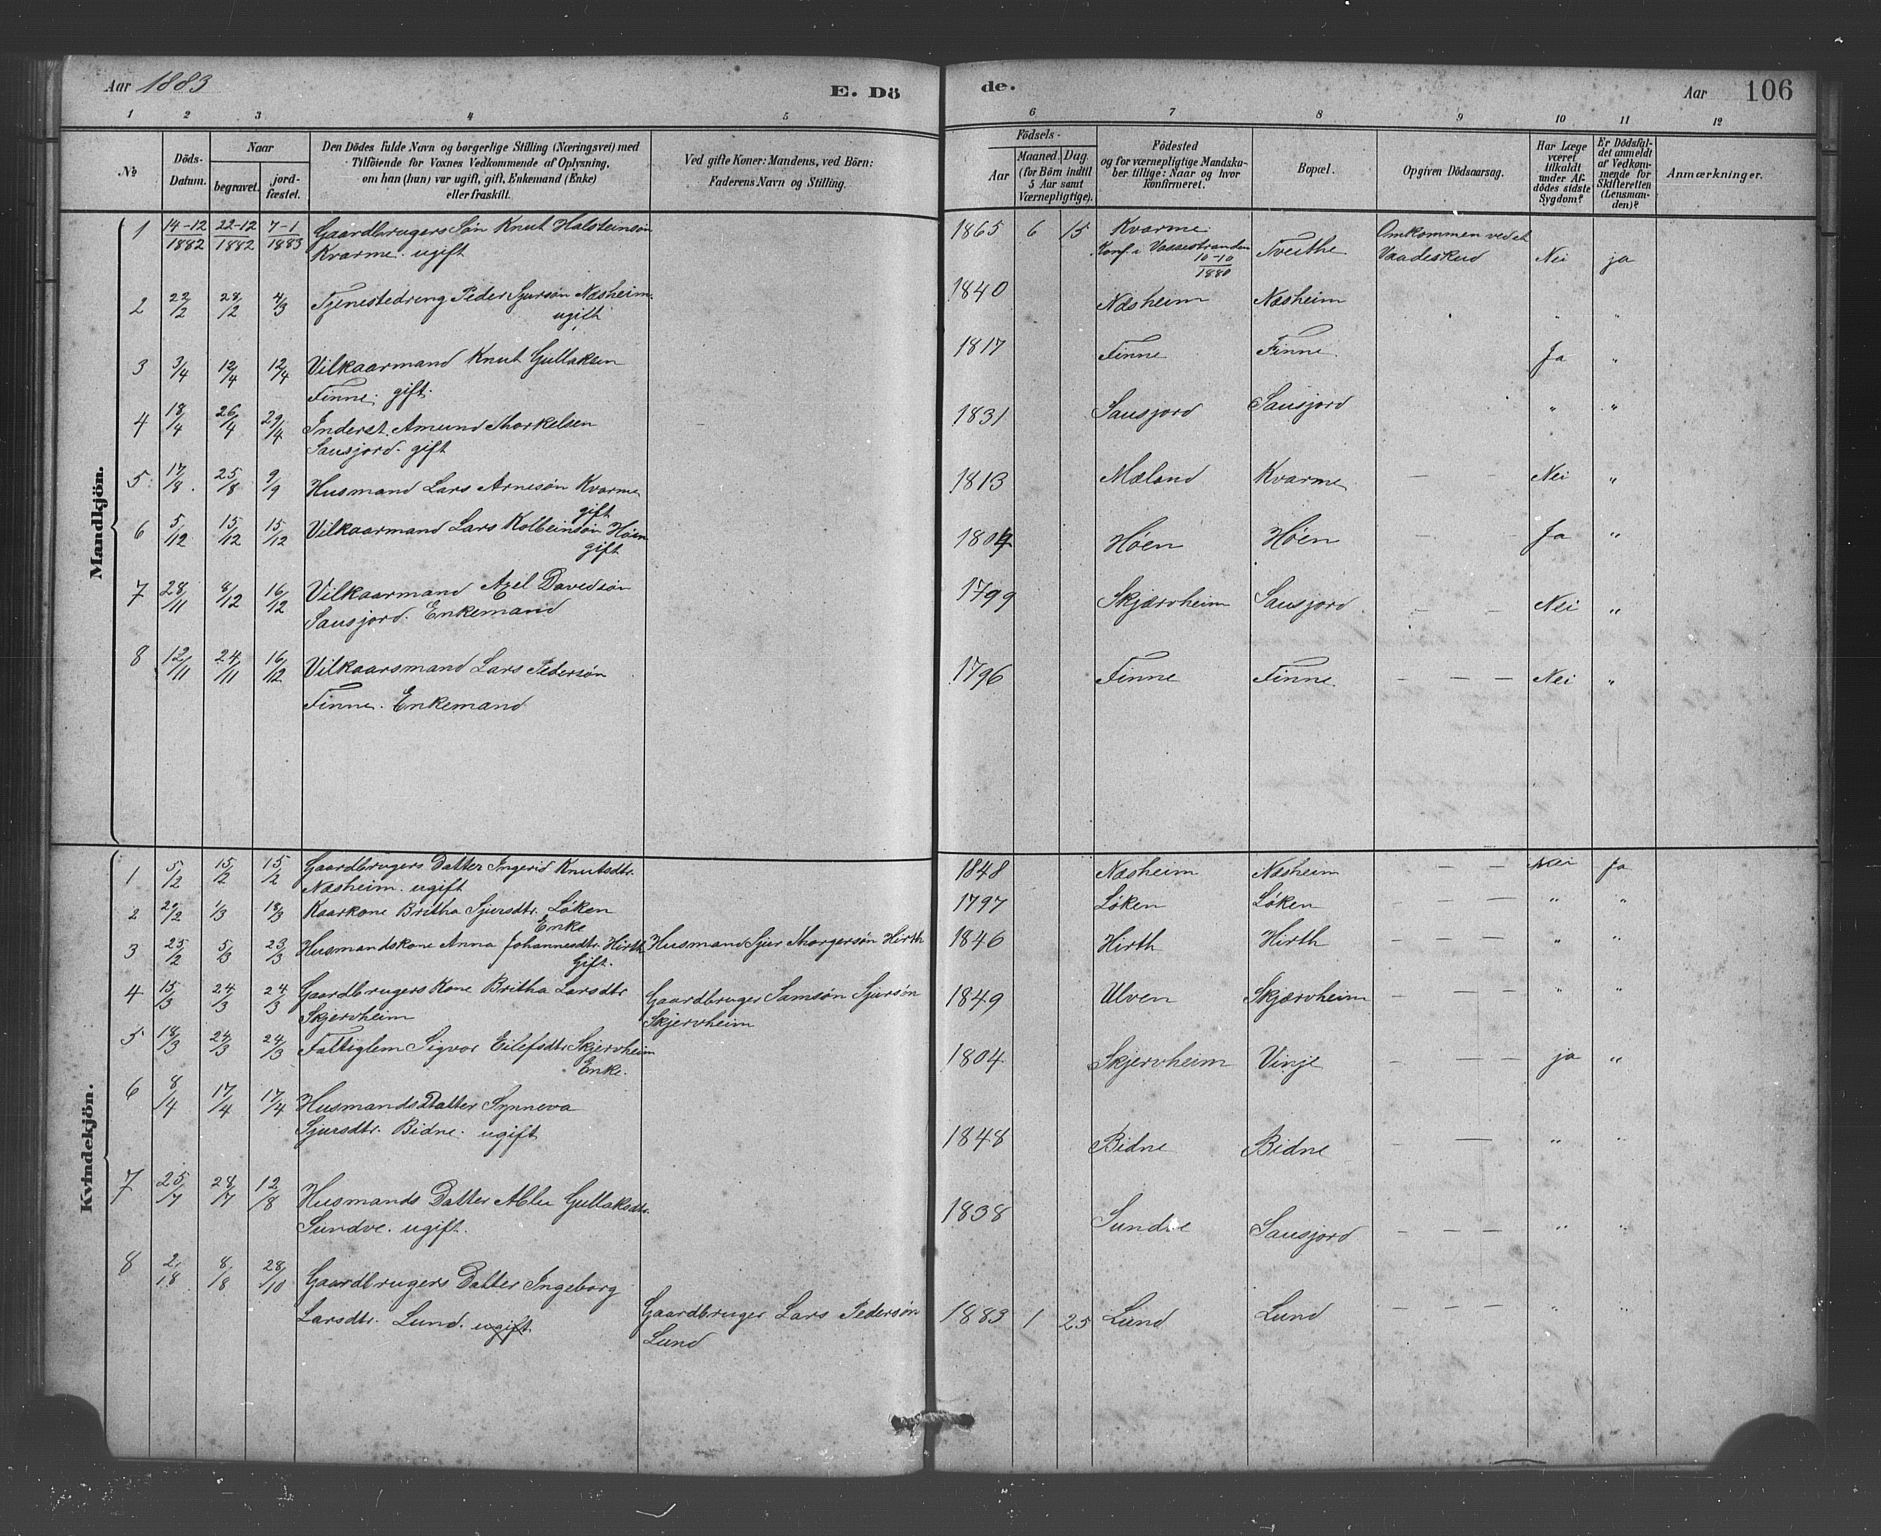 Aar 1883
E. Dö
de.
Aar 106
1 2 3 4 5 6 7 8 9 10 11 12
№
Döds-
Datum.
Naar
begravet.
jord-
fæstet.
Den Dödes fulde Navn og borgerlige Stilling (Næringsvei) med
Tilföiende for Voxnes Vedkommende af Oplysning,
om han (hun) var ugift, gift, Enkemand (Enke)
eller fraskilt.
Ved gifte Koner: Mandens, ved Börn:
Faderens Navn og Stilling.
Födsels-
Aar
Maaned. Dag.
(for Börn indtil
5 Aar samt
Værnepligtige).
Födested
og for værnepligtige Mandska-
ber tillige: Naar og hvor
Konfirmeret.
Bopæl.
Opgiven Dödsaarsag.
Har Læge
været
tilkaldt
under Af-
dödes sidste
Sygdom?
Er Dödsfal-
det anmeldt
af Vedkom-
mende for
Skifteretten
(Lensman-
den)?
Anmærkninger.
Mandkjön.
1 14-12/1882 22-12/1882 7-1/1883 Gaardbrugers Søn Knut Halsteinsøn 1865 6 15 Kvarme Omkommen ved et
Kvarme. ugift Konf. i Vossestranden 10-10/1880 Tveithe Vaadeskud Nei ja
2 22/2 28/2 4/3 Tjenestedreng Peder Sjursøn Næsheim 1840 Næsheim Næsheim " "
ugift
3 3/4 12/4 12/4 Vilkaarmand Knut Gullaksen 1817 Finne Finne Ja "
Finne. gift.
4 18/4 26/4 29/4 Inderst. Amund Thorkelsen 1831 Sausjord Sausjord " "
Sausjord. gift
5 17/8 25/8 9/9 Husmand Lars Arnesøn Kvarme 1813 Mæland Kvarme — — Nei "
gift
6 5/12 15/12 15/12 Vilkaarmand Lars Kolbeinsøn Høen 1804 Høen Høen — — Ja "
gift
7 28/11 8/12 16/12 Vilkaarmand Axel Davidsøn 1799 Skjærvheim Sausjord — — Nei "
Sausjord. Enkemand
8 12/11 24/11 16/12 Vilkaarsmand Lars Pedersøn 1796 Finne Finne — — — Nei "
Finne. Enkemand
Kvindekjön.
1 5/2 15/2 15/2 Gaardbrugers Datter Ingerid Knutsdtr. 1848 Næsheim Næsheim — — — Nei Ja
Næsheim. ugift
2 1/3 18/3 Kaarkone Britha Sjursdtr. Løken 1797 Løken Løken — — — " "
Enke
3 25/2 5/3 23/3 Husmandskone Anna Johannesdtr. Hirth Husmand Sjur Thorgersøn Hirth 1846 Hirth Hirth — — — " "
Gift.
4 15/3 24/3 24/3 Gaardbrugers Kone Britha Larsdtr Gaardbruger Samsøn Sjursøn 1849 Ulven Skjærvheim — — — " "
Skjervheim Skjervheim
5 18/3 24/3 24/3 Fattiglem Sigvor Eilefsdtr. Skjervheim 1804 Skjervheim Vinje — — — ja "
Enke.
6 8/4 17/4 17/4 Husmands Datter Synneva 1848 Bidne Bidne — — — " "
Sjursdtr. Bidne. ugift
7 25/7 28/7 12/8 Husmands Datter Gullaksdtr. 1838 Sundve Sausjord — — — " "
Sundve. ugift.
8 2/8 8/8 28/10 Gaardbrugers Datter Ingeborg
Larsdtr. Lund. ugift. Gaardbruger Lars Pedersøn 1883 1 25 Lund Lund — — — " "
Lund